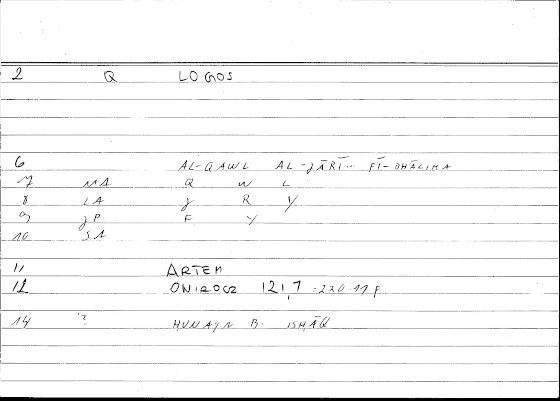 2 Q LOGOS
6 AL-QAWL AL-JĀRĪ FĪ-DHĀLIKA
7 NA Q W L
8 LA J R Y
9 JP F Y
10 SA
11 ARTEM
12 ONIROCR 121,7 :220.17 f
14 ? ḤUNAYN B. ISḤĀQ